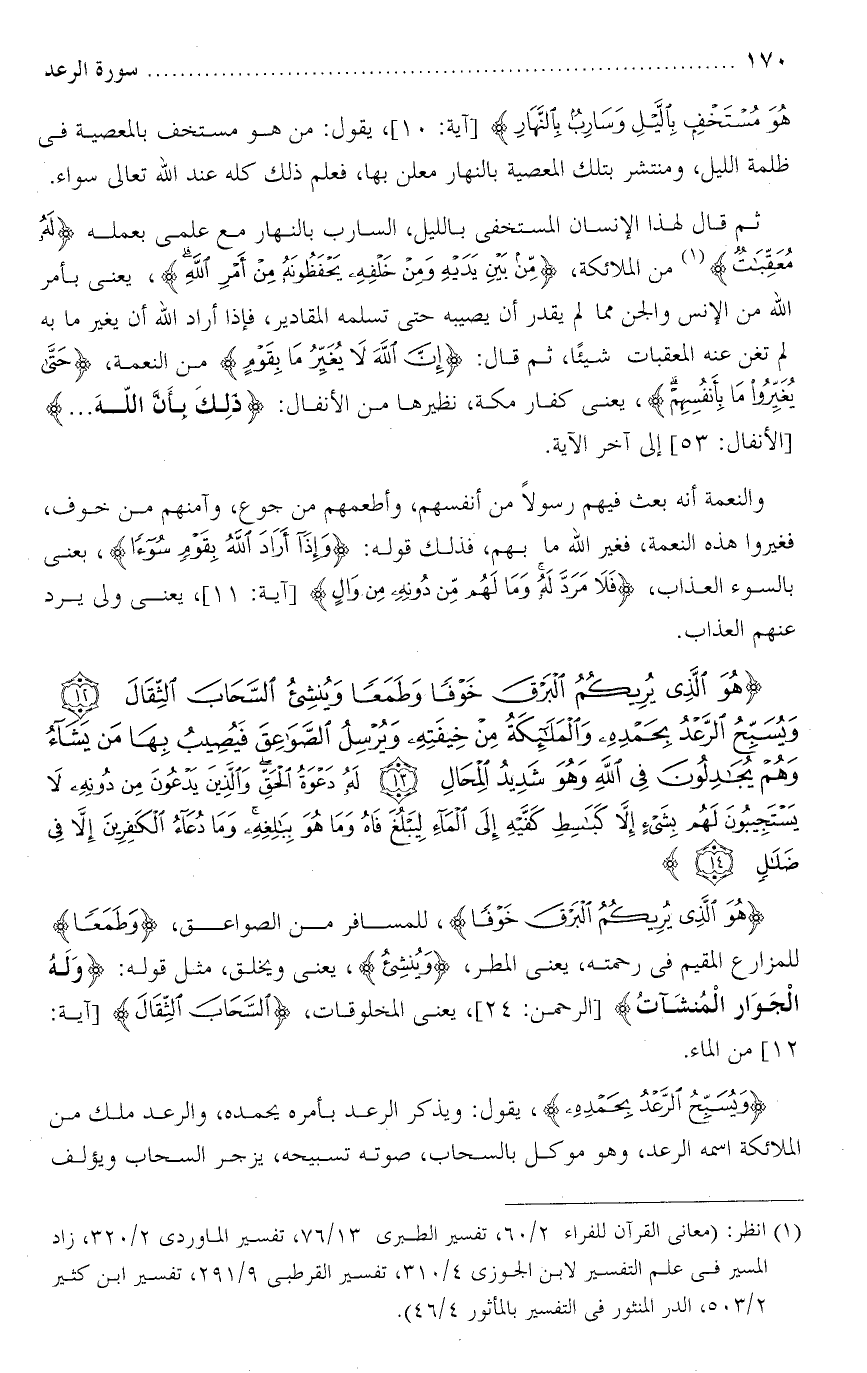 ١٧٠ ........................................................................ سورة الرعد
هُوَ مُسْتَخْفٍ بِٱلَّيْلِ وَسَارِبٌ بِٱلنَّهَارِ﴾ [آية: ١٠]، يقول: من هو مستخف بالمعصية فى
ظلمة الليل، ومنتشر بتلك المعصية بالنهار معلن بها، فعلم ذلك كله عند الله تعالى سواء.
ثم قال لهذا الإنسان المستخفى بالليل، السارب بالنهار مع علمى بعمله ﴿لَهُۥ
مُعَقِّبَٰتٌ﴾(١) من الملائكة، ﴿مِّنۢ بَيْنِ يَدَيْهِ وَمِنْ خَلْفِهِۦ يَحْفَظُونَهُۥ مِنْ أَمْرِ ٱللَّهِۗ﴾، يعنى بأمر
الله من الإنس والجن مما لم يقدر أن يصيبه حتى تسلمه المقادير، فإذا أراد الله أن يغير ما به
لم تغن عنه المعقبات شيئًا، ثم قال: ﴿إِنَّ ٱللَّهَ لَا يُغَيِّرُ مَا بِقَوْمٍ﴾ من النعمة، ﴿حَتَّىٰ
يُغَيِّرُواْ مَا بِأَنفُسِهِمْۗ﴾، يعنى كفار مكة، نظيرها من الأنفال: ﴿ذَلِكَ بِأَنَّ اللّهَ...﴾
[الأنفال: ٥٣] إلى آخر الآية.
والنعمة أنه بعث فيهم رسولاً من أنفسهم، وأطعمهم من جوع، وآمنهم من خوف،
فغيروا هذه النعمة، فغير الله ما بهم، فذلك قوله: ﴿وَإِذَآ أَرَادَ ٱللَّهُ بِقَوْمٍ سُوٓءًا﴾، يعنى
بالسوء العذاب، ﴿فَلَا مَرَدَّ لَهُۥۚ وَمَا لَهُم مِّن دُونِهِۦ مِن وَالٍ﴾ [آية: ١١]، يعنى ولى يرد
عنهم العذاب.
﴿هُوَ ٱلَّذِى يُرِيكُمُ ٱلْبَرْقَ خَوْفًا وَطَمَعًا وَيُنشِئُ ٱلسَّحَابَ ٱلثِّقَالَ ١٢
وَيُسَبِّحُ ٱلرَّعْدُ بِحَمْدِهِۦ وَٱلْمَلَٰٓئِكَةُ مِنْ خِيفَتِهِۦ وَيُرْسِلُ ٱلصَّوَٰعِقَ فَيُصِيبُ بِهَا مَن يَشَآءُ
وَهُمْ يُجَٰدِلُونَ فِى ٱللَّهِ وَهُوَ شَدِيدُ ٱلْمِحَالِ ١٣ لَهُۥ دَعْوَةُ ٱلْحَقِّۖ وَٱلَّذِينَ يَدْعُونَ مِن دُونِهِۦ لَا
يَسْتَجِيبُونَ لَهُم بِشَىْءٍ إِلَّا كَبَٰسِطِ كَفَّيْهِ إِلَى ٱلْمَآءِ لِيَبْلُغَ فَاهُ وَمَا هُوَ بِبَٰلِغِهِۦۚ وَمَا دُعَآءُ ٱلْكَٰفِرِينَ إِلَّا فِى
ضَلَٰلٍ ١٤﴾
﴿هُوَ ٱلَّذِى يُرِيكُمُ ٱلْبَرْقَ خَوْفًا﴾، للمسافر من الصواعق، ﴿وَطَمَعًا﴾
للمزارع المقيم فى رحمته، يعنى المطر، ﴿وَيُنشِئُ﴾، يعنى ويخلق، مثل قوله: ﴿وَلَهُ
الْجَوَارِ الْمُنشَآتُ﴾ [الرحمن: ٢٤]، يعنى المخلوقات، ﴿ٱلسَّحَابَ ٱلثِّقَالَ﴾ [آية:
١٢] من الماء.
﴿وَيُسَبِّحُ ٱلرَّعْدُ بِحَمْدِهِۦ﴾، يقول: ويذكر الرعد بأمره يحمده، والرعد ملك من
الملائكة اسمه الرعد، وهو موكل بالسحاب، صوته تسبيحه، يزجر السحاب ويؤلف
(١) انظر: (معانى القرآن للفراء ٦٠/٢، تفسير الطبرى ٧٦/١٣، تفسير الماوردى ٣٢٠/٢، زاد
المسير فى علم التفسير لابن الجوزى ٣١٠/٤، تفسير القرطبى ٢٩١/٩، تفسير ابن كثير
٥٠٣/٢، الدر المنثور فى التفسير بالمأثور ٤٦/٤).